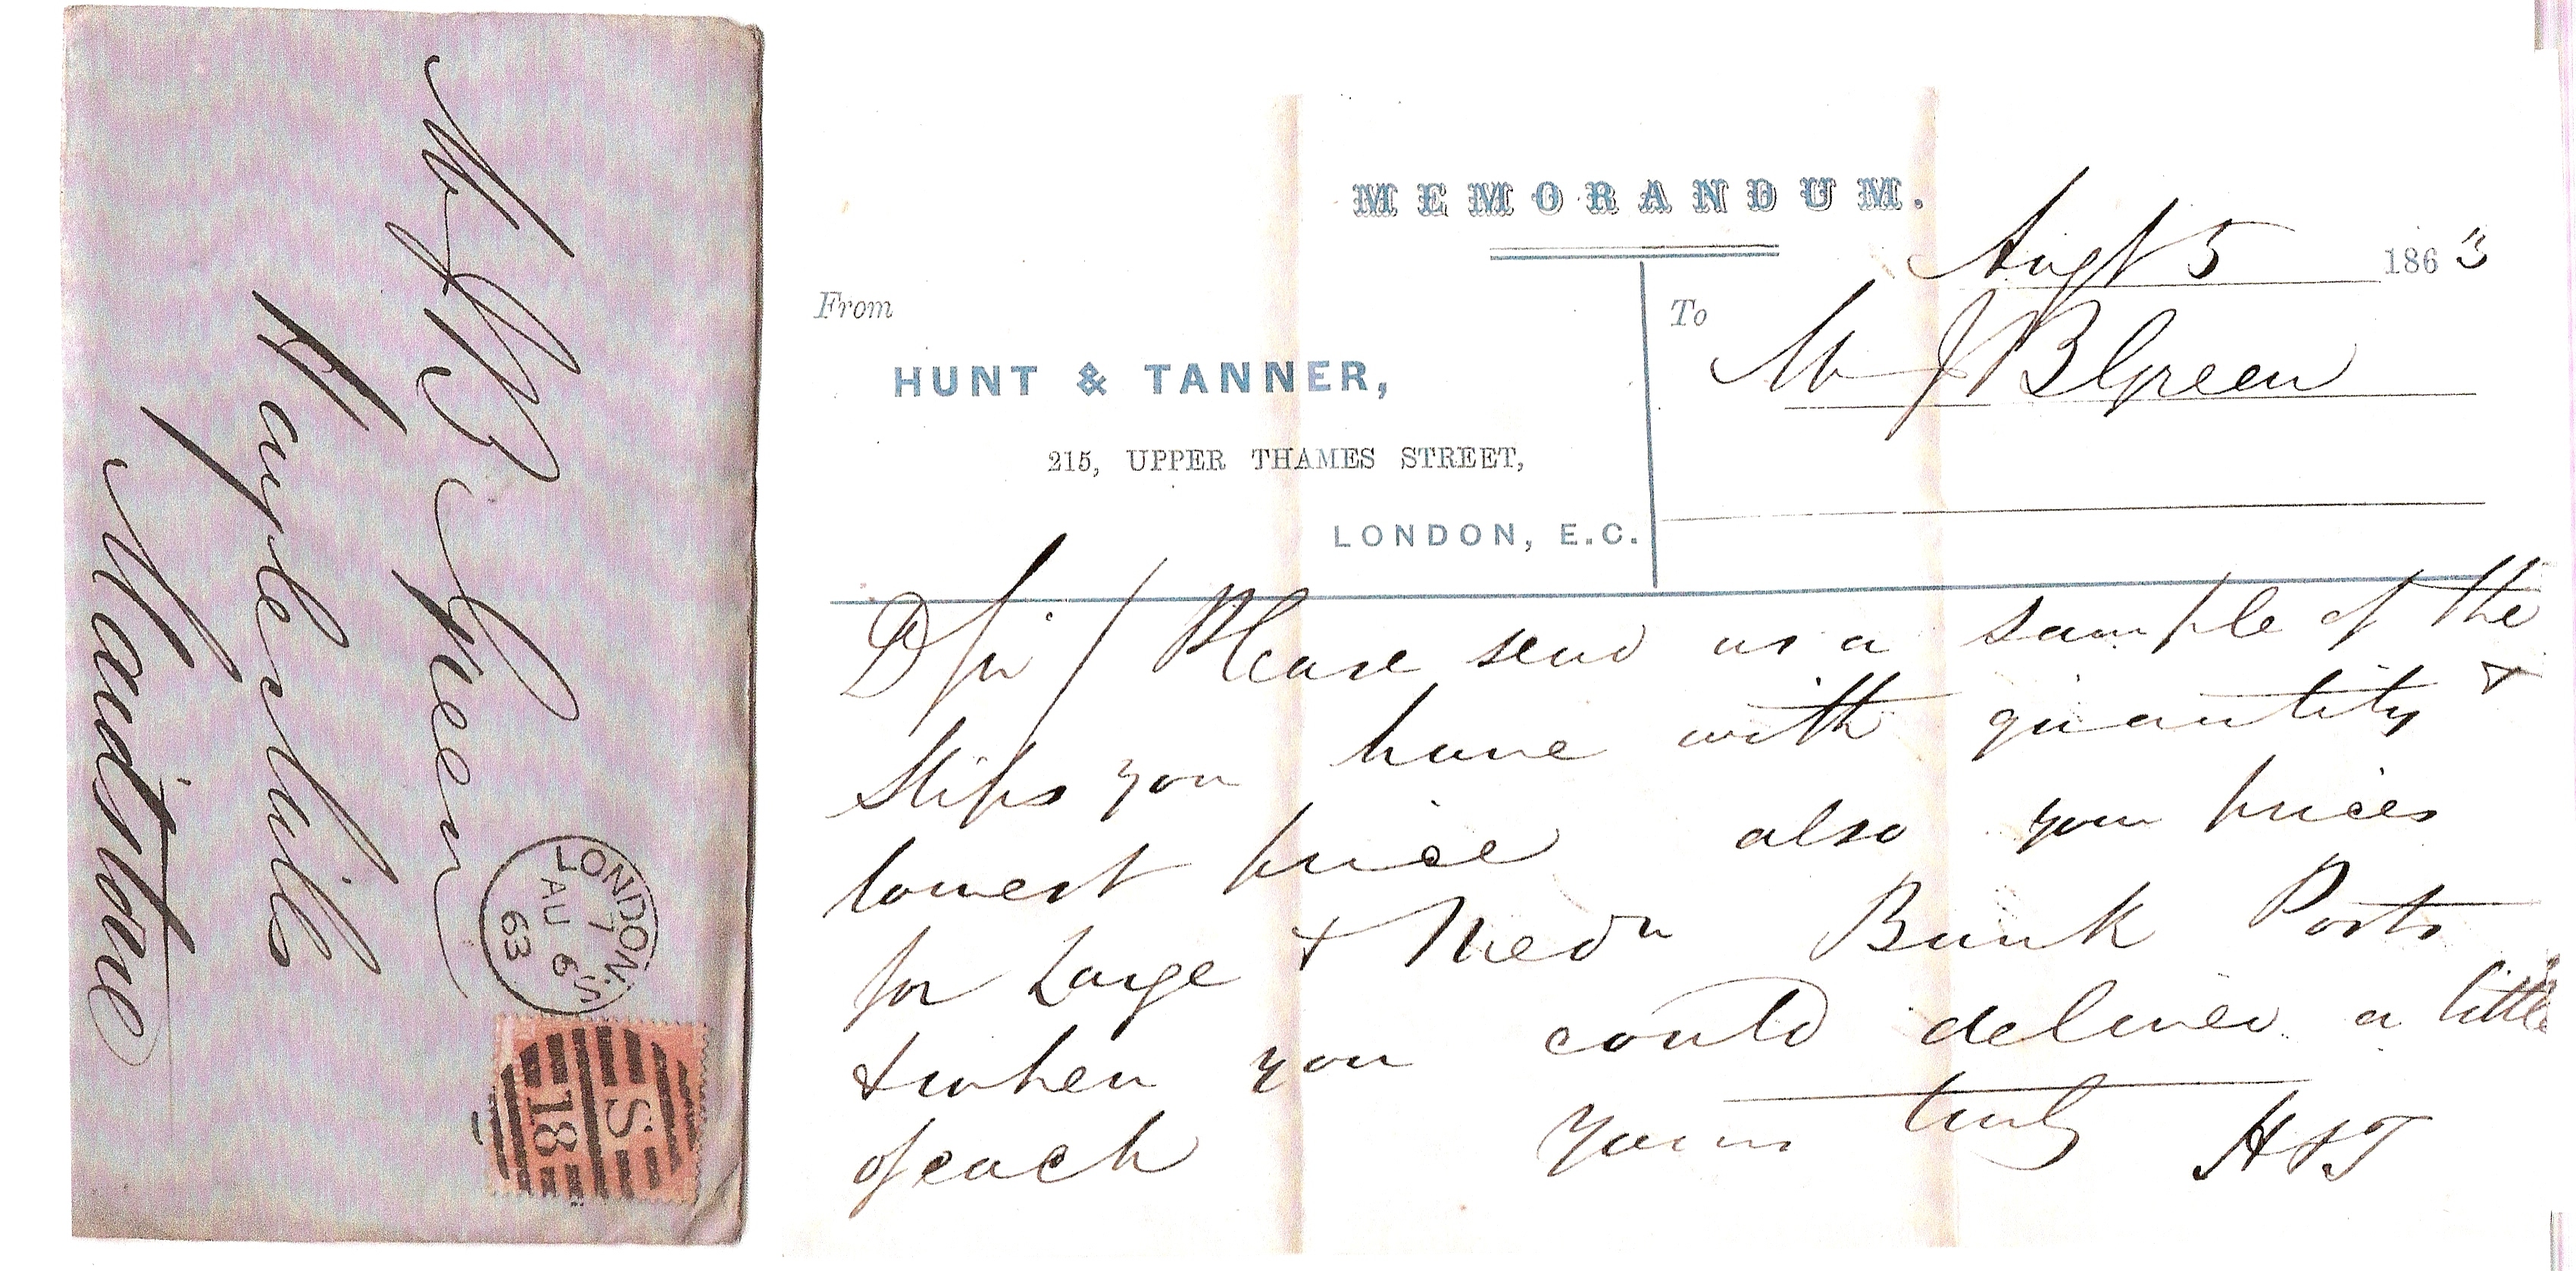 Mr J B Green
Hayle Mill
Maidstone
LONDON. S
7
AU 6
63
S
18
MEMORANDUM.
Augt 5 1863
From
HUNT & TANNER,
215, UPPER THAMES STREET,
LONDON, E.C.
To
Mr J B Green
D Sir / Please send us a sample of the
Slips you have with quantity &
lowest price also your prices
for Large & Medm Bank Posts
& when you could deliver a little
of each Yours truly H & T